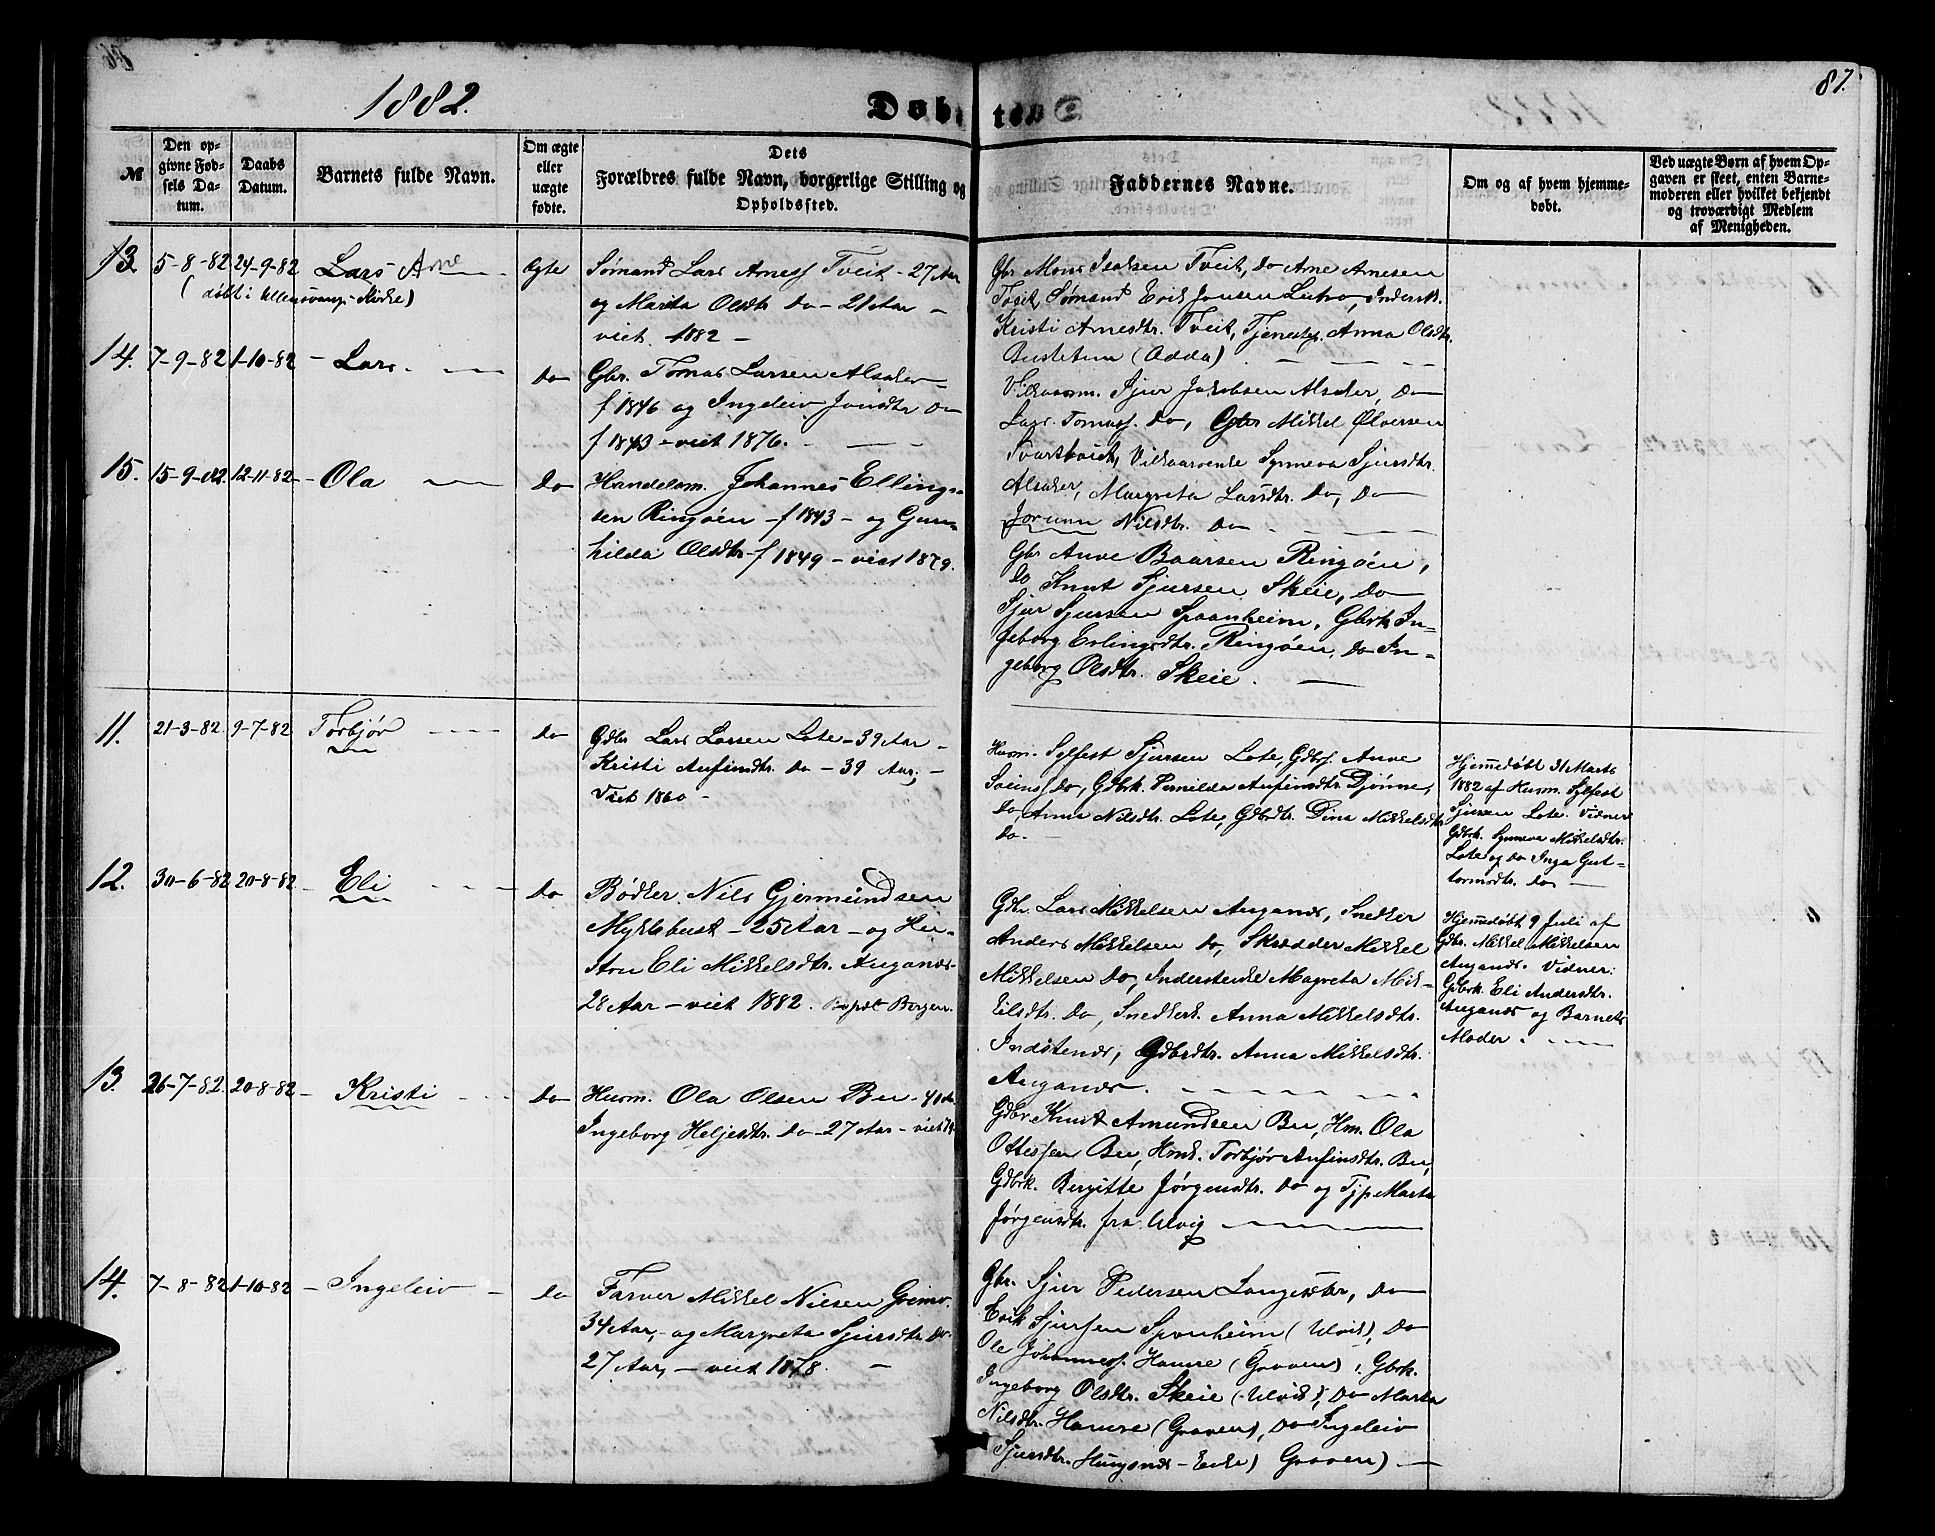 1882.
Døbte
87.
№
Den op-
givne Fød-
sels Da-
tum.
Daabs
Datum.
Barnets fulde Navn.
Om ægte
eller
uægte
fødte.
Dets
Forældres fulde Navn, borgerlige Stilling og
Opholdssted.
Faddernes Navne.
Om og af hvem hjemme-
døbt.
Ved uægte Børn af hvem Op-
gaven er skeet, enten Barne-
moderen eller hvilket bekjendt
og troværdigt Medlem
af Menigheden.
13. 5-8-82 24-9-82 Lars Arne Ægte
(døbt i Ullensvangs Kirke)
Sømand Lars Arness Tveit - 27 Aar
og Marita Olsdtr do - 21 Aar -
viet 1882 -
Gbr Mons Isaksen Tveit, do Arne Arnesen
Tveit, Sømand Erik Jonsen Lutro, Inderstk.
Kristi Arnesdtr. Tveit, Tjenestep. Anna Olsdtr.
Bustetun (Odda)
14. 7-9-82 1-10-82 - Lars. do
Gbr. Tomas Larsen Alsaker
f 1846 og Ingeleiv Jonsdtr do
f 1843 - viet 1876.
Ølversen
Svartveit, Synneva Sjursdtr.
Alsaker, Margreta Larsdtr. do, do
Jorunn Nilsdtr. do
15. 15-9-82. 12-11-82 - Ola do
Handelsm. Johannes Ellings-
sen Ringøen - f 1843 - og Gun-
hilda Olsdtr - f 1849 - viet 1879.
Gbr Anve Baarsen Ringøen,
do Knut Sjursen Skeie, do
Sjur Sjursen Spaanheim, Gbrk In-
geborg Erlingsdtr. Ringøen, do In-
geborg Olsdtr. Skeie.
11. 21-3-82. 9-7-82 Torbjør do
Gdbr Lars Larsen Lote - 39 Aar -
Kristi Anfinsdtr. do - 39 Aar; -
Viet 1860 -
Husm. Sylfest Sjursen Lote, Gdbrs. Anve
do, Gdbrk. Pernilda Anfinsdtr. Djønne,
do Anna Nilsdtr. Lote, Gdbrdtr. Dina Mikkelsdtr.
do.
Hjemmedøbt 31 Marts
1882 af Husm. Sylfest
Sjursen Lote. Vidner
Gdbrk. Synneva Mikkelsdtr.
Lote og do Inga Gut-
tormsdtr. do
12. 30-6-82 20-8-82 - Eli do
Bødker Nils Gjermundsen
Myklebust - 25 Aar - og Hu-
stru Eli Mikkelsdtr. Auganæs
28 Aar - viet 1882. Bergen.
Gdbr. Lars Mikkelsen Auganæs, Snedker
Anders Mikkelsen do, Skrædder Mikkel
Mikkelsen do, Inderstenke Magreta Mik-
kelsdtr. do, Snedkerk. Anna Mikkelsdtr.
Indstenæs, Gdbrdtr. Anna Mikkelsdtr.
Auganæs.
Hjemmedøbt 9 Juli af
Gdbr. Mikkel Mikkelsen
Auganæs. Vidner:
Gdbrk. Eli Andersdtr.
Auganæs og Barnets
Moder.
13. 26-7-82. 20-8-82 - Kristi do
Husm. Ola Olsen Bu - 40 Aar
Ingeborg Heljesdtr. do - 27 Aar - viet
Gdbr Knut Amundsen Bu, Hm. Ola
Ottessen Bu, Hmk. Torbjør Anfinsdtr. Bu,
Gdbrk. Bergitte Jørgensdtr. do og Tjp Marta
Jørgensdtr. fra Ulvig
14. 7-8-82 1-10-82 - Ingeleiv - do
Farver Mikkel Nilsen Grimo
34 Aar, - og Margreta Sjursdtr. do
27 Aar, - viet 1878. -
Gbr. Sjur Pedersen Langesæter, do
Erik Sjursen Sponheim (Ulvik), do
Ole Johanness. Hamre (Graven), Gbrk.
Ingeborg Olsdtr. Skeie (Ulvik), do Marta
Nilsdtr. Hamre (Graven), do Ingeleiv
Sjursdtr. Graven)